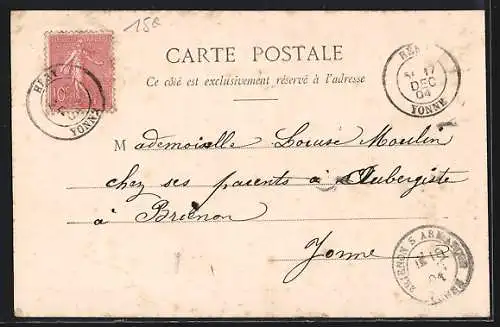 15e
CARTE POSTALE
Ce côté est exclusivement réservé à l'adresse
10
HÉRY
YONNE
HÉRY
17
DEC
04
YONNE
Mademoiselle Louise Moulin
chez ses parents à Aubergiste
à Brienon
Yonne
BRIENON S. ARMANÇON
04
YONNE